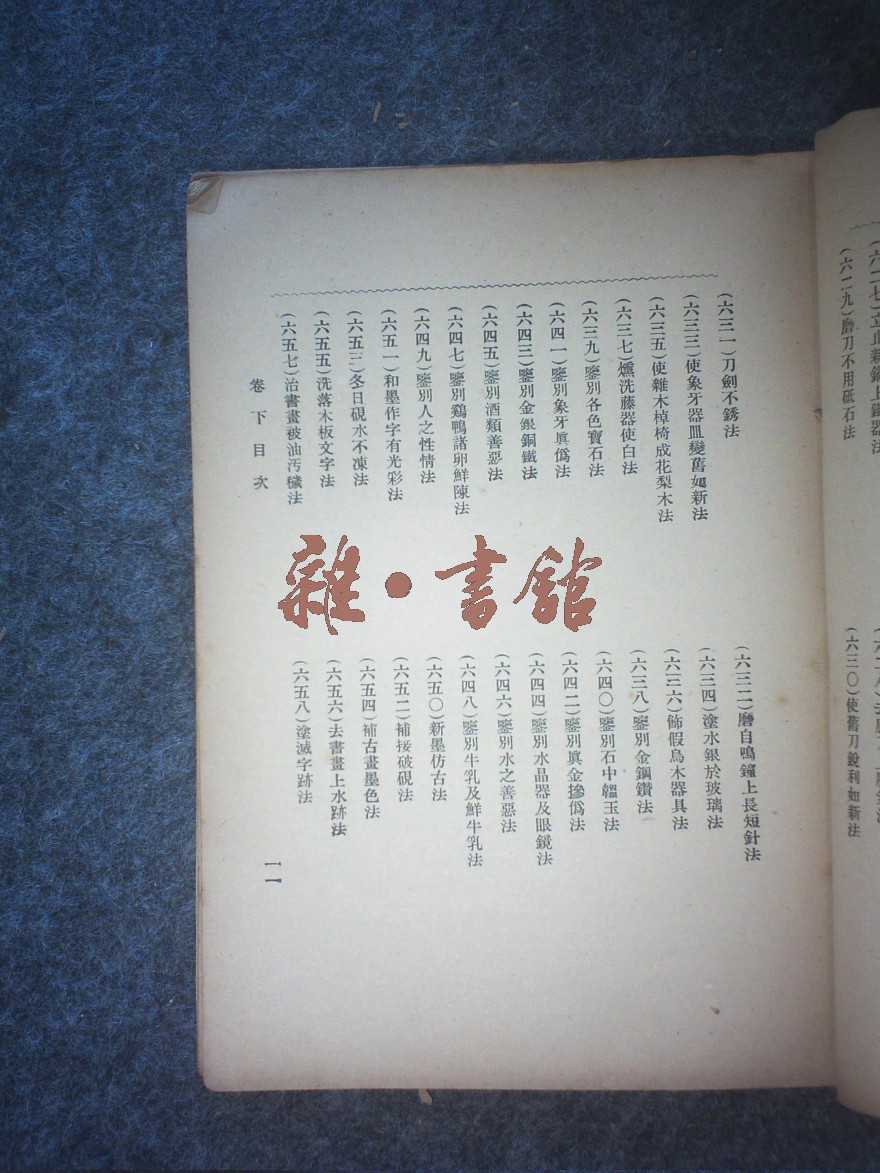 (六二九)磨刀不用砥石法
(六三〇)使舊刀銳利如新法
(六三一)刀劍不銹法
(六三二)磨自鳴鐘上長短針法
(六三三)使象牙器皿變舊如新法
(六三四)塗水銀於玻璃法
(六三五)使雜木棹椅成花梨木法
(六三六)飾假烏木器具法
(六三七)燻洗藤器使白法
(六三八)鑒別金鋼鑽法
(六三九)鑒別各色寶石法
(六四〇)鑒別石中韞玉法
(六四一)鑒別象牙眞僞法
(六四二)鑒別眞金摻僞法
(六四三)鑒別金銀銅鐵法
(六四四)鑒別水晶器及眼鏡法
(六四五)鑒別酒類善惡法
(六四六)鑒別水之善惡法
(六四七)鑒別鷄鴨諸卵鮮陳法
(六四八)鑒別牛乳及鮮牛乳法
(六四九)鑒別人之性情法
(六五〇)新墨仿古法
(六五一)和墨作字有光彩法
(六五二)補接破硯法
(六五三)冬日硯水不凍法
(六五四)補古畫墨色法
(六五五)洗落木板文字法
(六五六)去書畫上水跡法
(六五七)治書畫被油汚穢法
(六五八)塗滅字跡法
卷下目次
一一
雜·書館